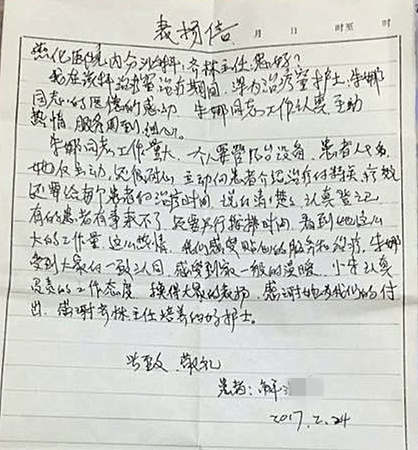 表扬信
月 日 时至 时
医院内分泌科:齐林主任,您好?
我在该科治疗室治疗期间,深为治疗室护士,朱娜
同志的医德的感动 朱娜同志工作认真 主动
热情,服务周到细心。
朱娜同志工作量大、一个人要管几台设备,患者人又多
她不主动,还很耐心 主动向患者介绍治疗的相关,疗效
还要给每个患者的治疗时间 说的清楚,认真登记
有的患者有事来不了 还要另行按排时间 看到她这么
大的工作量 这么热情,我们感受贴心的服务和治疗,朱娜
受到大家的一致认同,感觉到家一般的温暖,小朱认真
负责的工作态度 换得大家的表扬,感谢她为我们的付
出,感谢齐林主任培养的好护士。
此致 敬礼
患者:解
2017.2.24